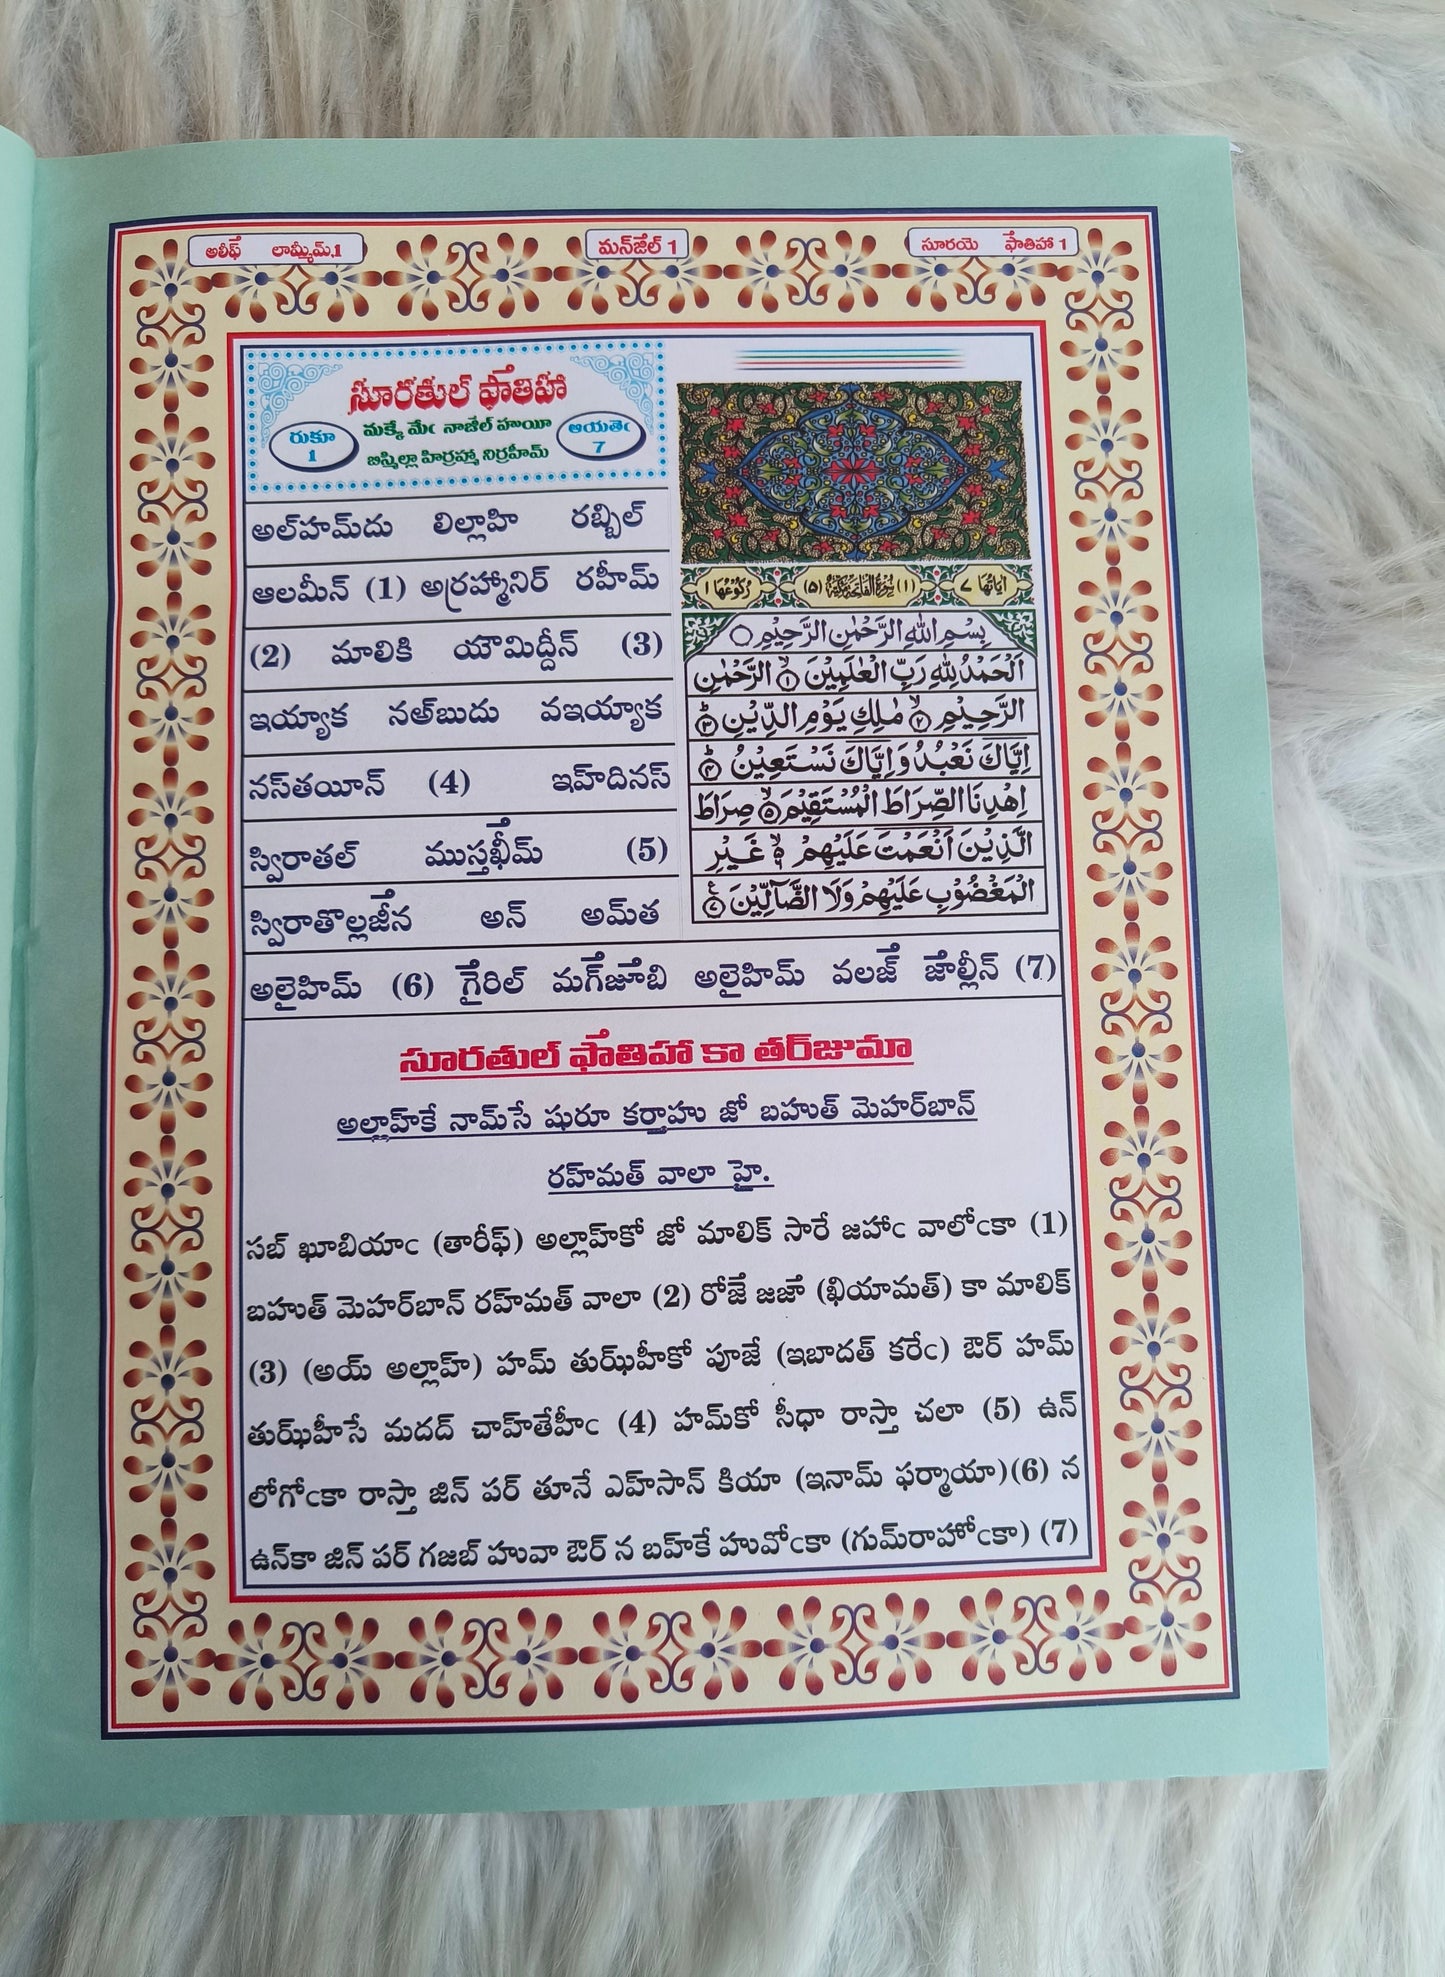 అలీఫ్ లామ్మీమ్,1
మన్‌జేల్ 1
సూరయె ఫాతిహా 1
సూరతుల్ ఫాతిహా
రుకూ
1
మక్కే మేఁ నాజేల్ హుయీ
బిస్మిల్లా హిర్రహ్మా నిర్రహీమ్
ఆయతెఁ
7
అల్‌హమ్‌దు లిల్లాహి రబ్బిల్
ఆలమీన్ (1) అర్రహ్మానిర్ రహీమ్
(2) మాలికి యౌమిద్దీన్ (3)
ఇయ్యాక నఅ్‌బుదు వఇయ్యాక
నస్‌తయీన్ (4) ఇహ్‌దినస్
స్విరాతల్ ముస్తఖీమ్ (5)
స్విరాతొల్లజీన అన్ అమ్‌త
అలైహిమ్ (6) గైరిల్ మగ్‌జూబి అలైహిమ్ వలజ్ జాల్లీన్ (7)
اٰيَاتُهَا ٧
(١) سُوْرَةُ الْفَاتِحَةِ مَكِّيَّةٌ (٥)
رُكُوْعُهَا ١
بِسْمِ اللّٰهِ الرَّحْمٰنِ الرَّحِيْمِ
اَلْحَمْدُ لِلّٰهِ رَبِّ الْعٰلَمِيْنَ ۙ‏﴿١﴾ الرَّحْمٰنِ
الرَّحِيْمِ ۙ‏﴿٢﴾ مٰلِكِ يَوْمِ الدِّيْنِ ؕ‏﴿٣﴾
اِيَّاكَ نَعْبُدُ وَاِيَّاكَ نَسْتَعِيْنُ ؕ‏﴿٤﴾
اِهْدِنَا الصِّرَاطَ الْمُسْتَقِيْمَ ۙ‏﴿٥﴾ صِرَاطَ
الَّذِيْنَ اَنْعَمْتَ عَلَيْهِمْ ۙ ﴿٦﴾ غَيْرِ
الْمَغْضُوْبِ عَلَيْهِمْ وَلَا الضَّآلِّيْنَ ﴿٧﴾
సూరతుల్ ఫాతిహా కా తర్‌జుమా
అల్లాహ్‌కే నామ్‌సే షురూ కర్తాహు జో బహుత్ మెహర్‌బాన్
రహ్‌మత్ వాలా హై.
సబ్ ఖూబియాఁ (తారీఫ్) అల్లాహ్‌కో జో మాలిక్ సారే జహాఁ వాలోఁకా (1)
బహుత్ మెహర్‌బాన్ రహ్‌మత్ వాలా (2) రోజే జజా (ఖియామత్) కా మాలిక్
(3) (అయ్ అల్లాహ్) హమ్ తుఝ్‌హీకో పూజే (ఇబాదత్ కరేఁ) ఔర్ హమ్
తుఝ్‌హీసే మదద్ చాహ్‌తేహీఁ (4) హమ్‌కో సీధా రాస్తా చలా (5) ఉన్
లోగోఁకా రాస్తా జిన్ పర్ తూనే ఎహ్‌సాన్ కియా (ఇనామ్ ఫర్మాయా)(6) న
ఉన్‌కా జిన్ పర్ గజబ్ హువా ఔర్ న బహ్‌కే హువోఁకా (గుమ్‌రాహోఁకా) (7)